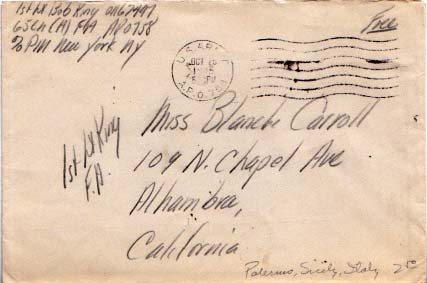 1st Lt Bob King
APO 758
c/o PM New York NY
Free
U.S. ARMY
OCT
A.P.O.
1st Lt King
F.A.
Miss Blanche Carroll
109 N. Chapel Ave
Alhambra,
California
Palermo, Sicily, Italy